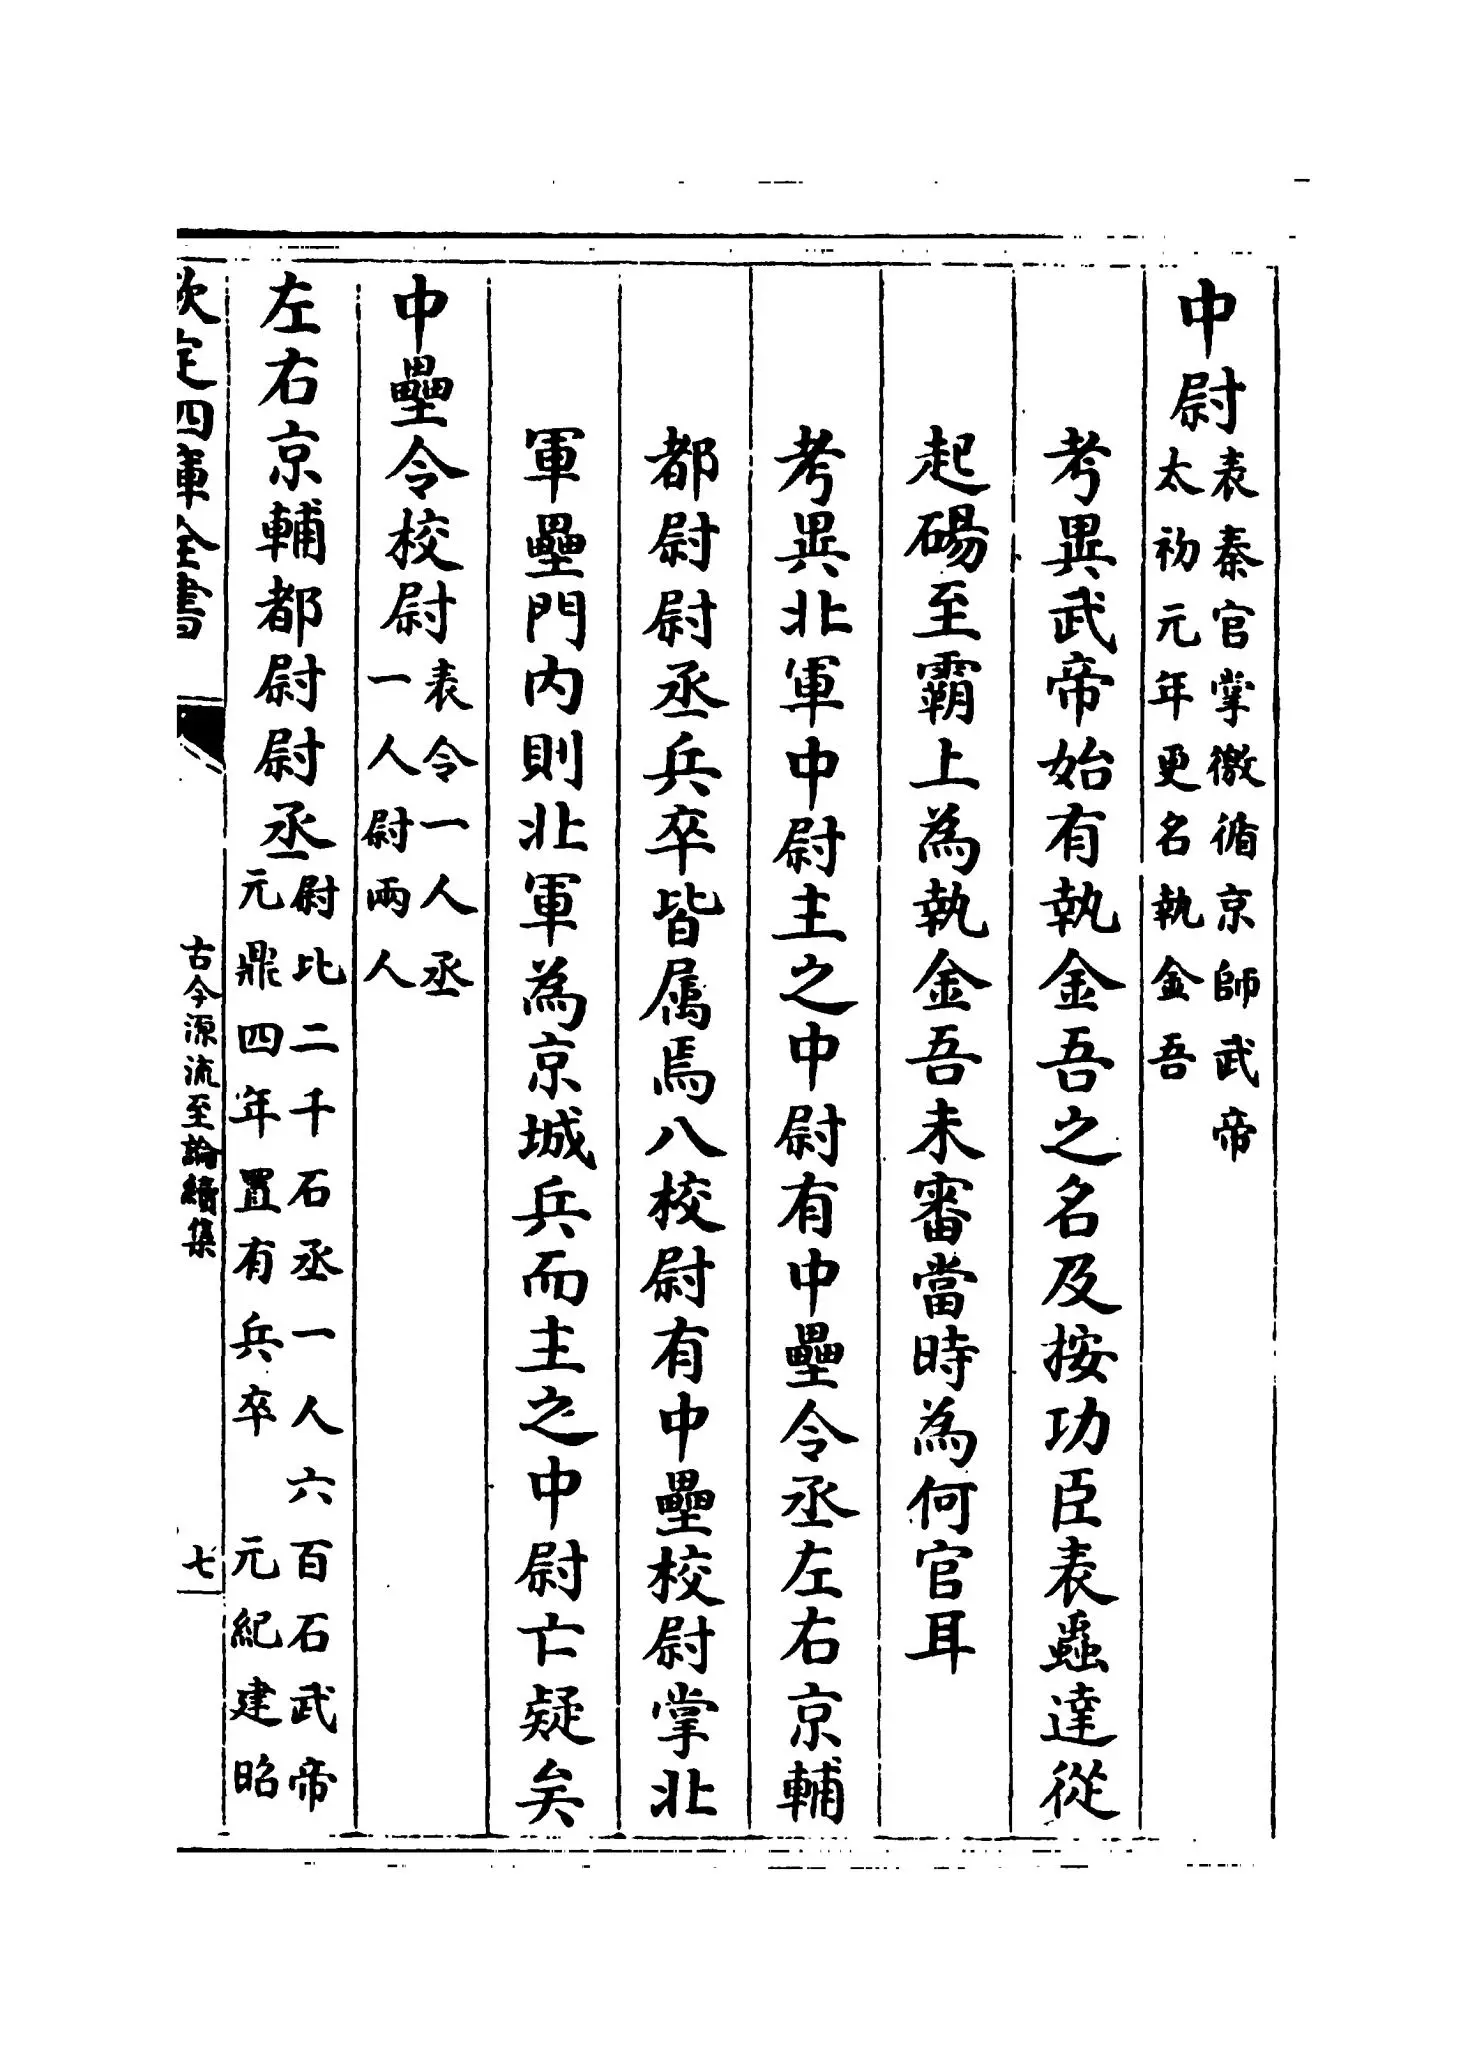 中尉表秦官掌徼循京師武帝
太初元年更名執金吾
考異武帝始有執金吾之名及按功臣表蟲達從
起碭至霸上為執金吾未審當時為何官耳
考異北軍中尉主之中尉有中壘令丞左右京輔
都尉尉丞兵卒皆属焉八校尉有中壘校尉掌北
軍壘門內則北軍為京城兵而主之中尉亡疑矣
中壘令校尉表令一人丞
一人尉兩人
左右京輔都尉尉丞尉比二千石丞一人六百石武帝
元鼎四年置有兵卒 元紀建昭
欽定四庫全書
古今源流至論續集
七